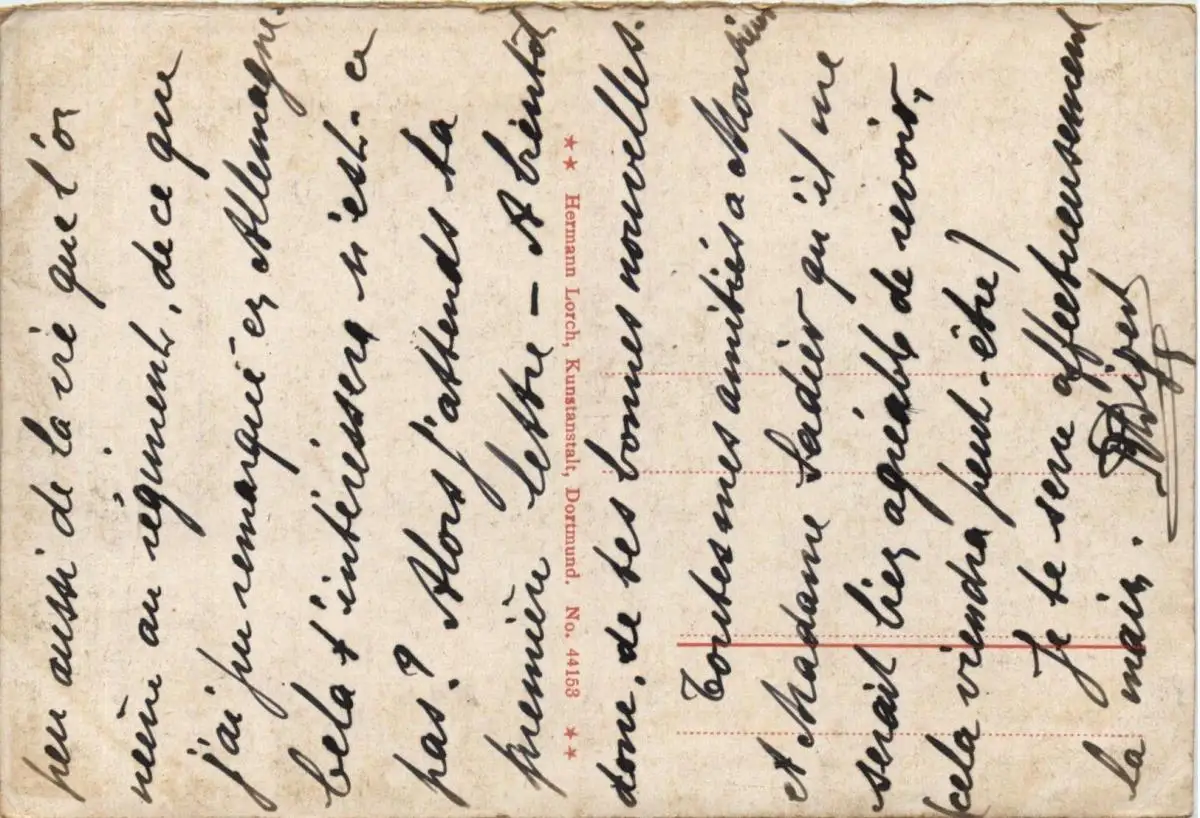 peu aussi de la vie que l'on
mène au régiment, de ce que
j'ai pu remarquer en Allemagne.
Cela t'intéressera n'est-ce
pas? Alors j'attends ta
première lettre — A bientôt
★★ Hermann Lorch, Kunstanstalt, Dortmund. No. 44153 ★★
donc, de tes bonnes nouvelles.
Toutes mes amitiés a Monsieur
et Madame qu'il me
serait bien agréable de revoir,
(cela viendra peut-être)
Je te serre affectueusement
la main.